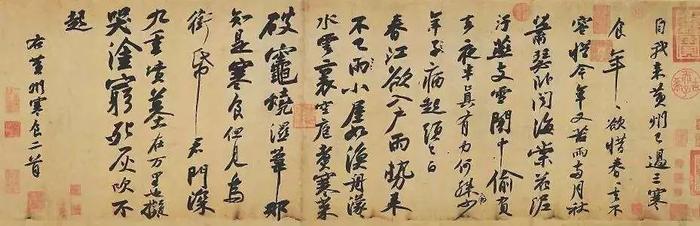 自我來黃州已過三寒
食年〻欲惜春〻去不
容惜今年又苦雨兩月秋
蕭瑟卧聞海棠花泥
汙燕支雪闇中偷負
去夜半真有力何殊病少
年子病起頭已白
春江欲入戶雨勢來
不已雨小屋如漁舟濛〻
水雲裏空庖煑寒菜
破竈燒濕葦那
知是寒食但見烏
銜帋君門深
九重墳墓在万里也擬
哭塗窮死灰吹不
起
右黃州寒食二首